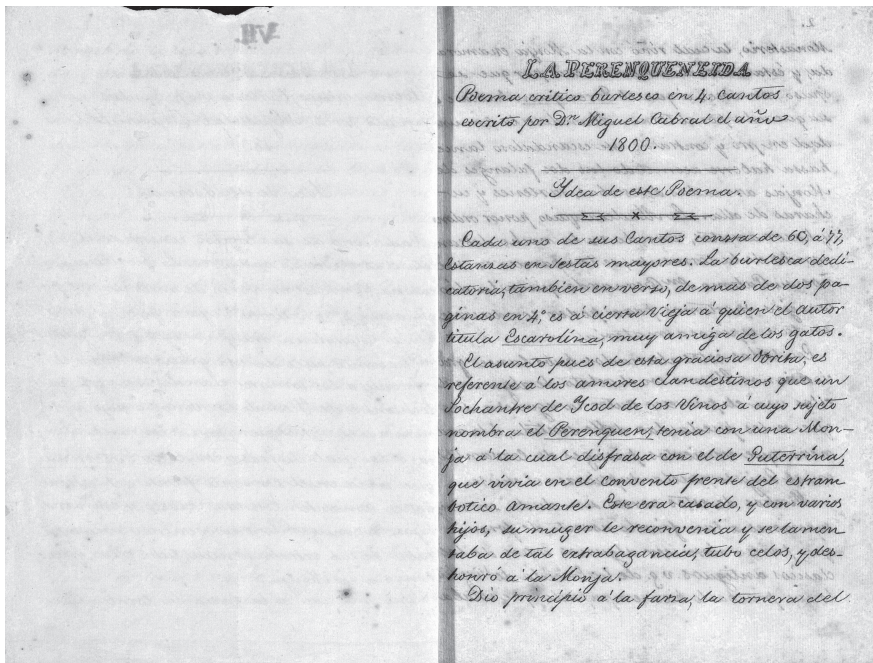 VII.
2.
LA PERENQUENEIDA
Poema critico burlesco en 4 Cantos
escrito por Dn Miguel Cabral el año
1800.
Ydea de este Poema.
Cada uno de sus Cantos consta de 60, á 77,
Estanzas en sestas mayores. La burlesca dedi-
catoria, tambien en verso, de mas de dos pa-
ginas en 4.º es á cierta Vieja á quien el Autor
titula Escarolina, muy amiga de los gatos.
El asunto pues de esta graciosa Obrita, es
referente á los amores clandestinos que un
Sochantre de Ycod de los Vinos á cuyo sujeto
nombra el Perenquen, tenia con una Mon-
ja á la cual disfrasa con el de Puterrina,
que vivia en el convento frente del estram
botico amante. Este era casado, y con varios
hijos, su muger le reconvenia y se lamen
taba de tal extrabagancia, tubo celos, y des-
honró á la Monja.
Dio principio á la farza, la tornera del